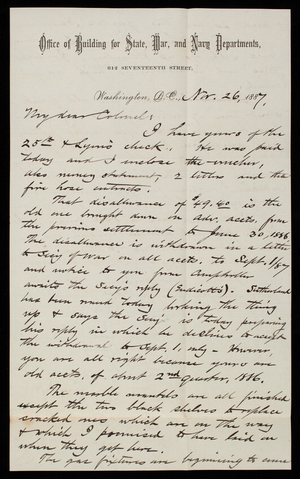 Office of Building for State, War, and Navy Departments,
813 SEVENTEENTH STREET,
Washington, D.C., Nov. 26, 1887.
My dear Colonel:
I have yours of the
25th & Lyons check. He was paid
today and I enclose the voucher,
also money statement, 2 letters and the
fire hose contracts.
That disallowance of $49.40 is the
old one brought down in adv. accts. from
the previous settlement to June 30, 1886
The disallowance is withdrawn in a letter
to Secy of War on all accts. to Sept. 1/87
and notice to you from Comptroller
awaits the Secy's reply (Endicott's). Sutherland
has been round today looking the thing
up & says the Secy is today preparing
his reply in which he declines to accept
the withdrawal to Sept. 1, only – However,
you are all right because yours are
old accts. of about 2nd quarter, 1886.
The marble mantels are all finished
except the two black shelves to replace
cracked ones which are on the way
& which I promised to have laid on
when they get here.
The gas fixtures are beginning to come